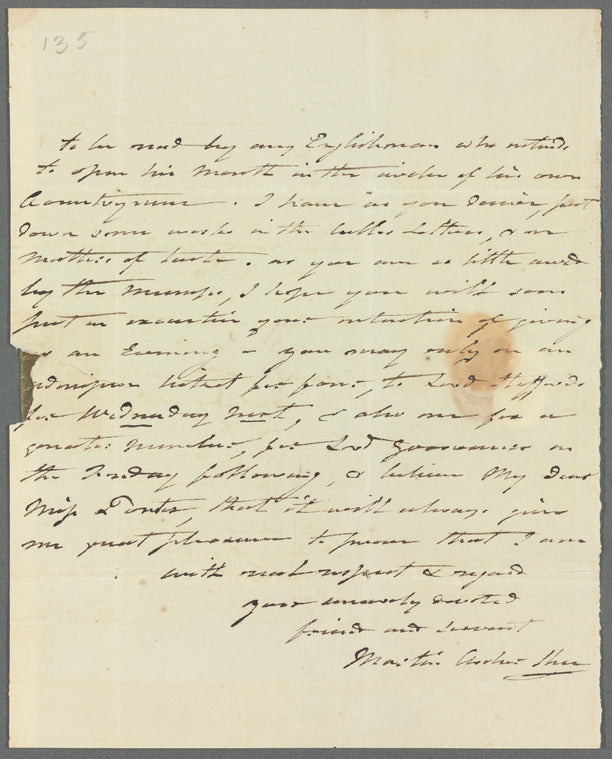 135
to be read by any Englishman who intends
to open his Mouth in the circles of his own
Countrymen. I have as you desired, put
down some works in the belles Letters, & on
Matters of taste. as you are so little
by the Mumps, I hope you will soon
put in execution your intention of giving
us an Evening - you may rely on an
admission ticket for four, to Lord Staffords
for Wednesday Next, & also one for a
greater Number, for Lord Grosvenors on
the Tuesday following, & believe My dear
Miss Porter, that it will always give
me great pleasure to prove that I am
with real respect & regard
your sincerely devoted
friend and servant
Martin Archer Shee